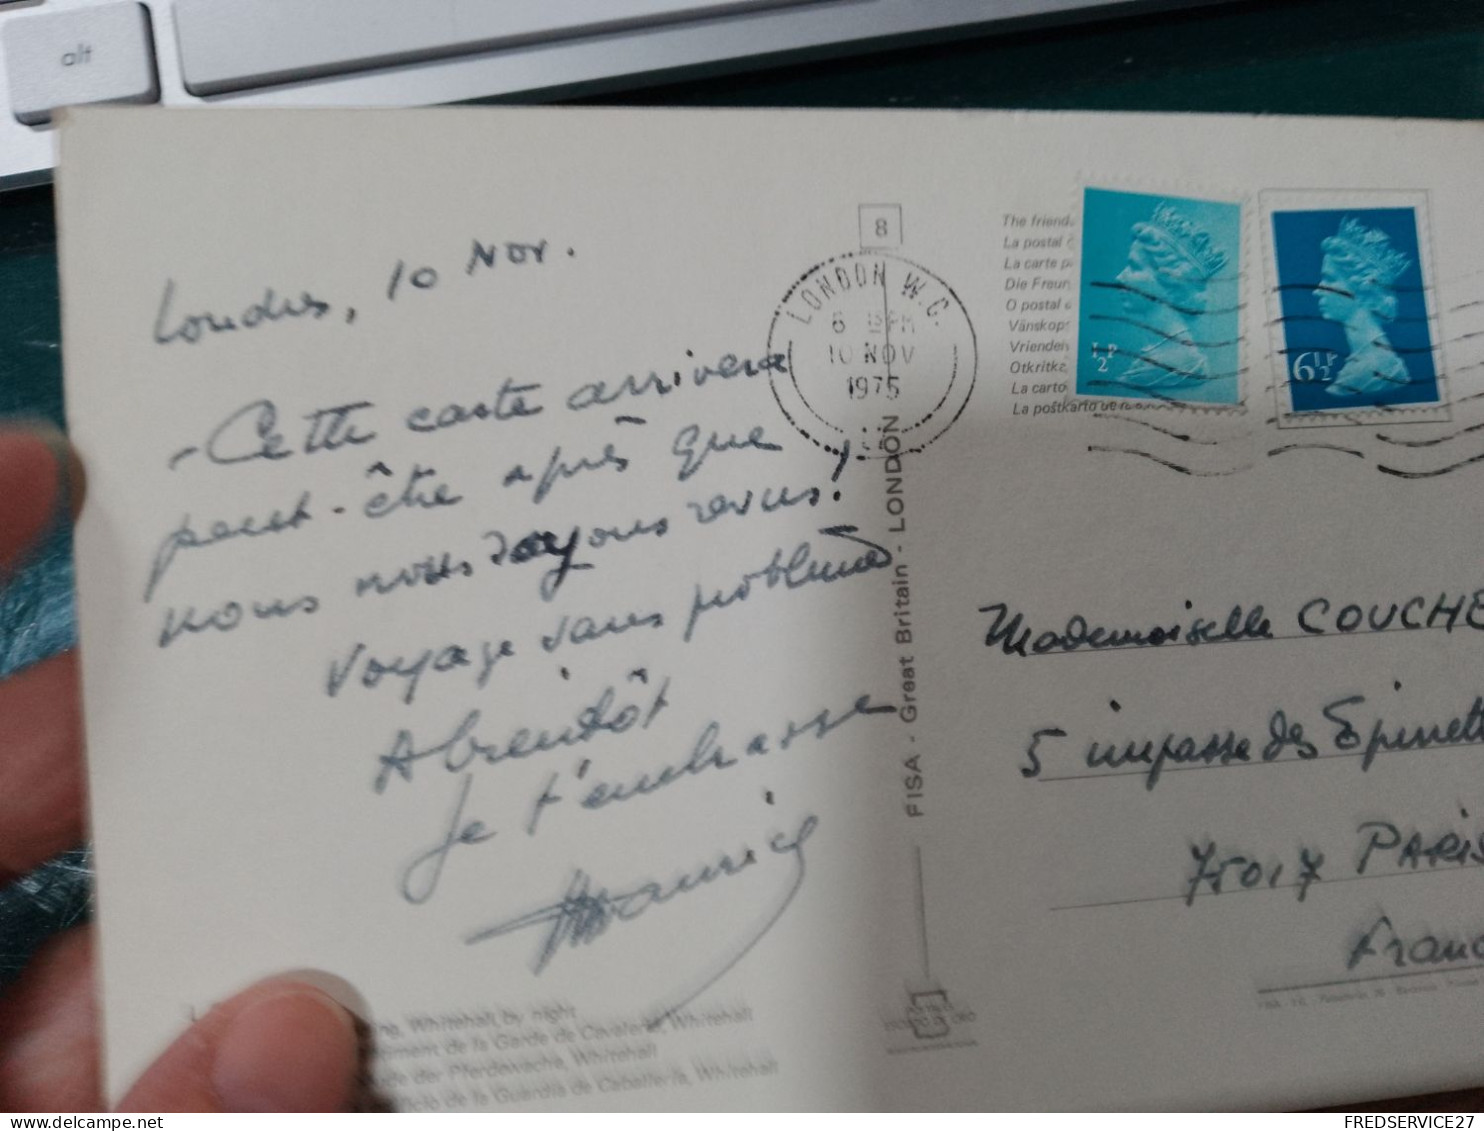 alt
Londres, 10 Nov.
- Cette carte arrivera
peut-être après que
nous nous soyons revus!
Voyage sans problèmes
A bientôt
Je t'embrasse
Maurice
8
LONDON W.C.
10 NOV
1975
The friend
La postal
La carte p
Die Freun
O postal
Vänskop
Vrienden
Otkritka
La carto
La poŝtkarto
½P
6½P
FISA - Great Britain - LONDON
Mademoiselle COUCHE
5 impasse des Epinett
75017 PARIS
Franc
Whitehall, by night
de la Garde de Cavalerie, Whitehall
der Pferdewache, Whitehall
de la Guardia de Caballeria, Whitehall
FREDSERVICE27